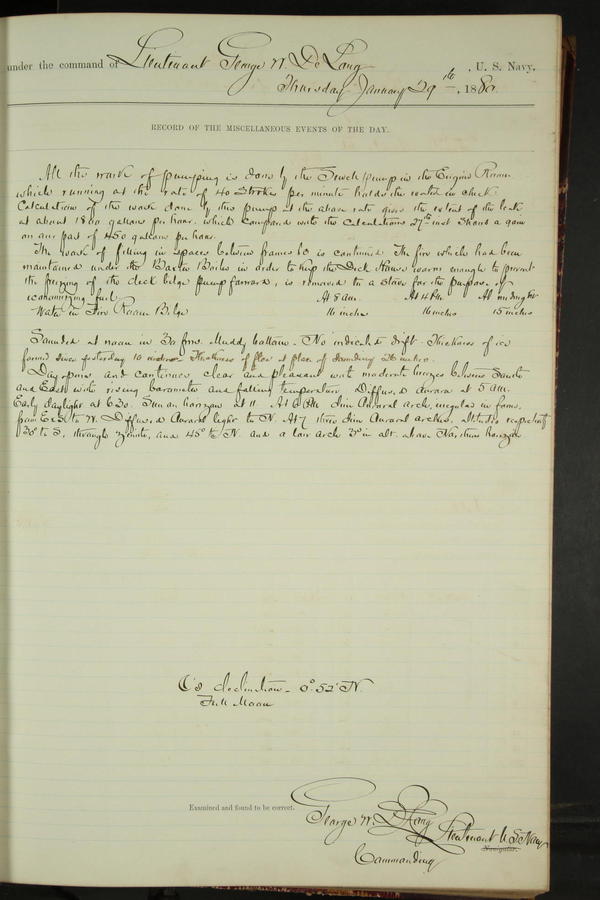 under the command of Lieutenant George W. De Long, U. S. Navy.
Thursday January 29th, 1880.
RECORD OF THE MISCELLANEOUS EVENTS OF THE DAY.
All the work of pumping is done by the Sewell pump in the Engine Room
which running at the rate of 40 Strokes per minute holds the water in check.
Calculation of the work done by this pump at the above rate gives the extent of the leak
at about 1800 gallons per hour, which compared with the Calculations 27th inst shows a gain
on our part of 450 gallons per hour.
The work of filling in spaces between frames is continued. The fire which had been
maintained under the Baxter Boiler in order to keep the Deck House warm enough to prevent
the freezing of the deck bilge pump forward, is removed to a stove for the purpose of
economizing fuel. At 8 am. At 4 PM. At midnight
Water in Fire Room Bilge 16 inches 16 inches 15 inches
Sounded at noon in 30 fms. Muddy bottom. No indicated drift. Thickness of ice
formed since yesterday 10 inches. Thickness of floe at place of sounding 26 inches.
Day opens and continues clear and pleasant with moderate breezes between South
and East with rising barometer and falling temperature. Diffused Aurora at 5 AM.
Early daylight at 6.30. Sun on horizon at 11. At 6 PM dim Auroral arch, irregular in form,
from E to W. Diffused Auroral light to N. At 7 three dim Auroral arches, altitudes respectively
30° to S, through zenith, and 45° to N. and a low arch 3° in alt. above Northern horizon.
☾'s declination - 0° 52' N.
Full Moon
Examined and found to be correct.
George W. De Long Lieutenant U. S. Navy
Navigator.
Commanding